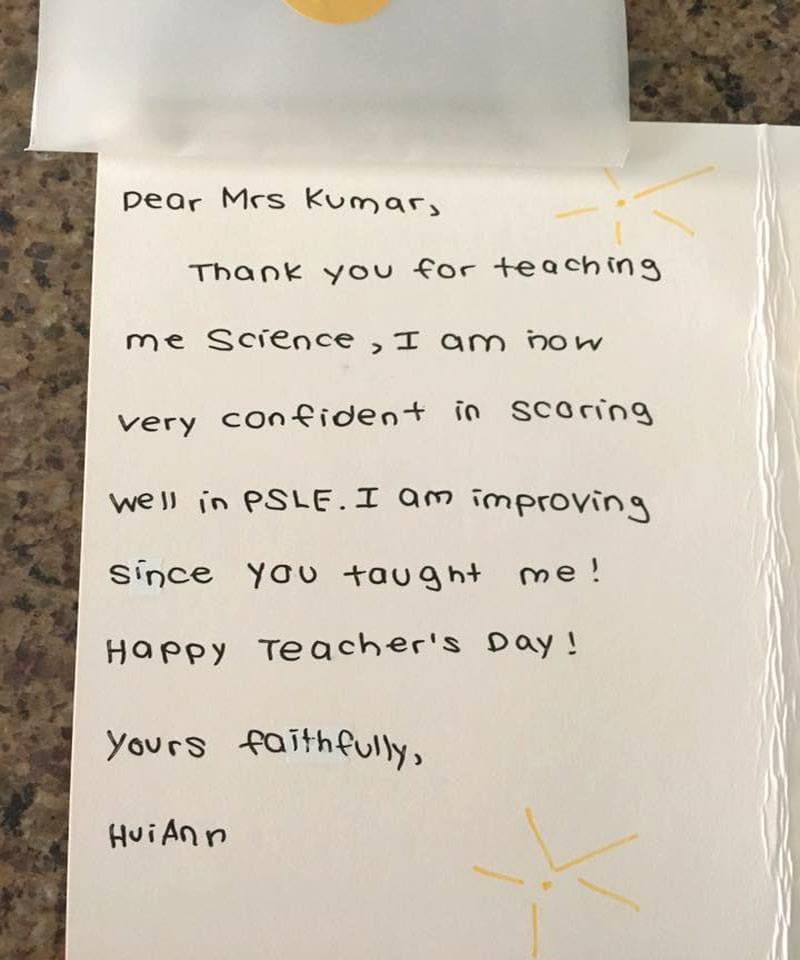 Dear Mrs Kumar,
Thank you for teaching
me Science, I am now
very confident in scoring
well in PSLE. I am improving
since you taught me!
Happy Teacher's Day!
Yours faithfully,
HuiAnn